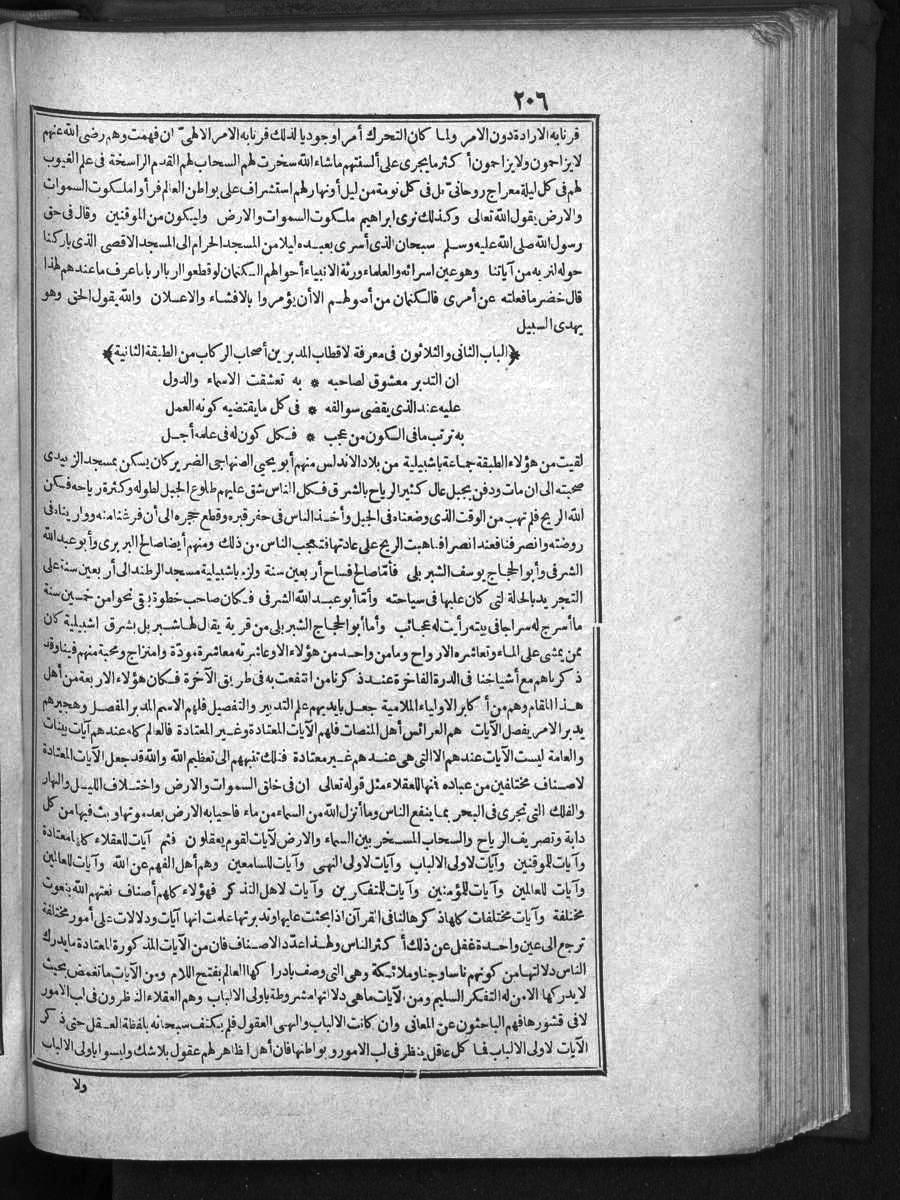 ٢٠٦
قرنا به الارادة دون الامر ولما كان التحرك أمرا وجوديا لذلك قرنا به الامر الالهىّ ان فهمت وهم رضى الله عنهم
لا يزاحمون ولا يزاحمون أكثر ما يجرى على ألسنتهم ما شاء الله سخرت لهم السحاب لهم القدم الراسخة فى علم الغيوب
لهم فى كل ليلة معراج روحانىّ بل فى كل نومة من ليل أو نهار لهم استشراف على بواطن العالم فرأوا ملكوت السموات
والارض يقول الله تعالى وكذلك نرى ابراهيم ملكوت السموات والارض وليكون من الموقنين وقال فى حق
رسول الله صلى الله عليه وسلم سبحان الذى أسرى بعبده ليلا من المسجد الحرام الى المسجد الاقصى الذى باركنا
حوله لنريه من آياتنا وهو عين اسرائه والعلماء ورثة الانبياء أحوالهم الكتمان لو قطعوا اربا اربا ما عرف ما عندهم لهذا
قال خضر ما فعلته عن أمرى فالكتمان من أصولهم الا أن يؤمروا بالافشاء والاعلان والله يقول الحق وهو
يهدى السبيل
﴿الباب الثانى والثلاثون فى معرفة لاقطاب المدبرين أصحاب الركاب من الطبقة الثانية﴾
ان التدبر معشوق لصاحبه * به تعشقت الاسماء والدول
عليه عند الذى يقضى سوالفه * فى كل ما يقتضيه كونه العمل
به ترتب ما فى الكون من عجب * فكل كون له فى علمه أجل
لقيت من هؤلاء الطبقة جماعة باشبيلية من بلاد الاندلس منهم أبو يحيى الصنهاجى الضرير كان يسكن بمسجد الزبيدى
صحبته الى ان مات ودفن بجبل عال كثير الرياح بالشرق فكل الناس شق عليهم طلوع الجبل لطوله وكثرة رياحه فسكن
الله الريح فلم تهب من الوقت الذى وضعناه فى الجبل وأخذ الناس فى حفر قبره وقطع حجره الى أن فرغنا منه وواريناه فى
روضته وانصرفنا فعند انصرافنا هبت الريح على عادتها فتعجب الناس من ذلك ومنهم أيضا صالح البربرى وأبو عبد الله
الشرفى وأبو الحجاج يوسف الشبربلى فأمّا صالح فساح أربعين سنة ولزم باشبيلية مسجد الرطندالى أربعين سنة على
التجريد بالحالة التى كان عليها فى سياحته وأمّا أبو عبد الله الشرفى فكان صاحب خطوة بقى نحوا من خمسين سنة
ما أسرج له سراجا فى بيته رأيت له عجائب وأما أبو الحجاج الشبربلى من قرية يقال لها شبربل بشرق اشبيلية كان
ممن يمشى على الماء وتعاشره الارواح وما من واحد من هؤلاء الا وعاشرته معاشرة مودّة وامتزاج ومحبة منهم فينا وقد
ذكرناهم مع أشياخنا فى الدرة الفاخرة عند ذكرنا من انتفعت به فى طريق الآخرة فكان هؤلاء الاربعة من أهل
هذا المقام وهم من أكابر الاولياء الملامية جعل بايديهم علم التدبير والتفصيل فلهم الاسم المدبر المفصل وهجيرهم
يدبر الامر يفصل الآيات هم العرائس أهل المنصات فلهم الآيات المعتادة وغير المعتادة فالعالم كله عندهم آيات بينات
والعامة ليست الآيات عندهم الا التى هى عندهم غير معتادة فتلك تنبههم الى تعظيم الله والله قد جعل الآيات المعتادة
لاصناف مختلفين من عباده فمنها للعقلاء مثل قوله تعالى ان فى خلق السموات والارض واختلاف الليل والنهار
والفلك التى تجرى فى البحر بما ينفع الناس وما أنزل الله من السماء من ماء فاحيا به الارض بعد موتها وبث فيها من كل
دابة وتصريف الرياح والسحاب المسخر بين السماء والارض لآيات لقوم يعقلون فثم آيات للعقلاء كلها معتادة
وآيات للموقنين وآيات لاولى الالباب وآيات لاولى النهى وآيات للسامعين وهم أهل الفهم عن الله وآيات للعالمين
وآيات للعالمين وآيات للمؤمنين وآيات للمتفكرين وآيات لاهل التذكر فهؤلاء كلهم أصناف نعتهم الله بنعوت
مختلفة وآيات مختلفات كلها ذكرها لنا فى القرآن اذا بحثت عليها وتدبرتها علمت انها آيات ودلالات على أمور مختلفة
ترجع الى عين واحدة غفل عن ذلك أكثر الناس ولهذا عدّد الاصناف فان من الآيات المذكورة المعتادة ما يدرك
الناس دلالتها من كونهم ناسا وجنا وملائكة وهى التى وصف بادراكها العالم بفتح اللام ومن الآيات ما تغمض بحيث
لا يدركها الا من له التفكر السليم ومن الآيات ما هى دلالتها مشروطة باولى الالباب وهم العقلاء الناظرون فى لب الامور
لا فى قشورها فهم الباحثون عن المعانى وان كانت الالباب والنهى العقول فلم يكتف سبحانه بلفظة العقل حتى ذكر
الآيات لاولى الالباب فما كل عاقل ينظر فى لب الامور وبواطنها فان أهل الظاهر لهم عقول بلا شك وليسوا باولى الالباب
ولا